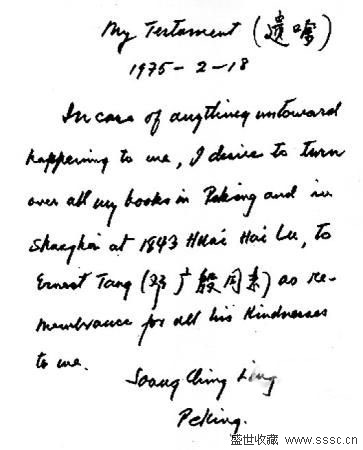 My Testament (遺嘱)
1975-2-18
In case of anything untoward
happening to me, I desire to turn
over all my books in Peking and in
Shanghai at 1843 Huai Hai Lu, to
Ernest Tang (邓广殷同志) as re-
membrance for all his kindnesses
to me.
Soong Ching Ling
Peking.
盛世收藏 www.sssc.cn